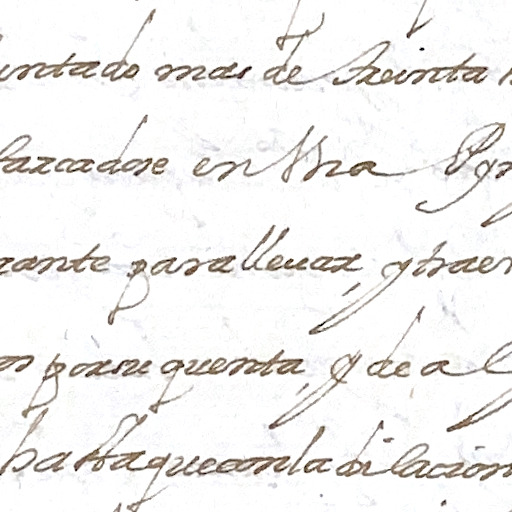 untado mas de treinta
barcadose en Una
rante para lleuar, y traer
por su quenta, y de al
hasta que con la dilacion